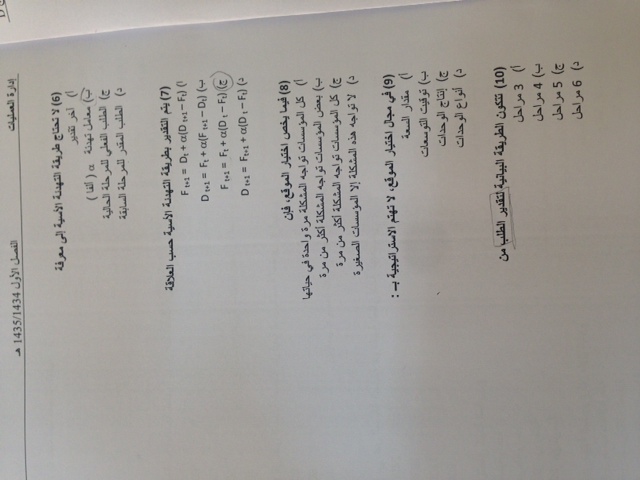 إدارة العمليات
الفصل الأول 1435/1434 هـ
(6) لا تحتاج طريقة التهدئة الأسية إلى معرفة
أ) آخر تقدير
ب) معامل تهدئة α ( ألفا )
ج) الطلب الفعلي للمرحلة الحالية
د) الطلب المقدر للمرحلة السابقة
(7) يتم التقدير بطريقة التهدئة الأسية حسب العلاقة
أ) F t+1 = Dt + α(Dt+1 – Ft)
ب) D t+1 = Ft + α(F t+1 – Dt)
ج) F t+1 = Ft + α(D t – Ft)
د) D t+1 = Ft+1 + α(D t – Ft)
(8) فيما يخص اختيار الموقع، فإن
أ) كل المؤسسات تواجه المشكلة مرة واحدة في حياتها
ب) بعض المؤسسات تواجه المشكلة أكثر من مرة
ج) كل المؤسسات تواجه المشكلة أكثر من مرة
د) لا تواجه هذه المشكلة إلا المؤسسات الصغيرة
(9) في مجال اختيار الموقع، لا تهتم الاستراتيجية بـ :
أ) مقدار السعة
ب) توقيت التوسعات
ج) إنتاج الوحدات
د) أنواع الوحدات
(10) تتكون الطريقة البيانية لتقدير الطلب من
أ) 3 مراحل
ب) 4 مراحل
ج) 5 مراحل
د) 6 مراحل